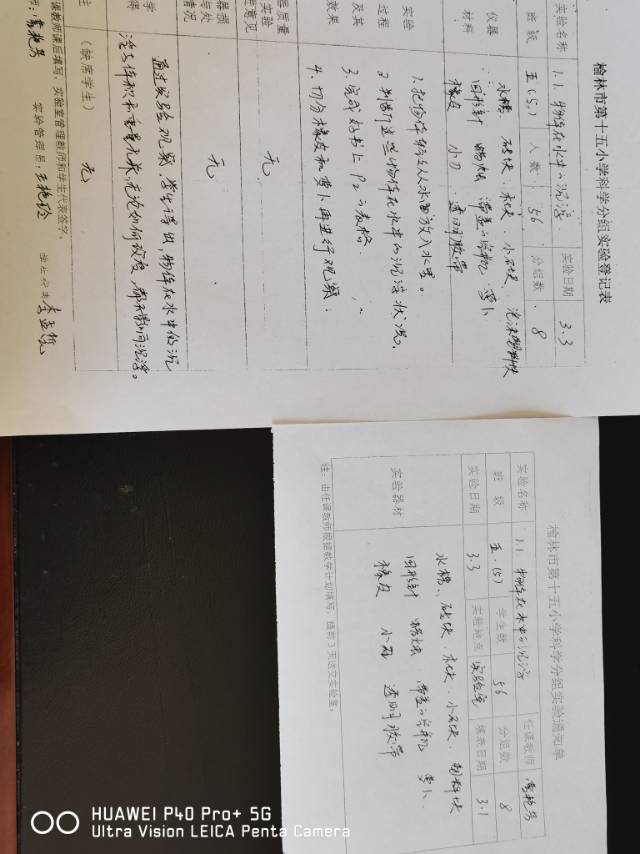 榆林市第十五小学科学分组实验登记表
实验名称 1.1 物体在水中的沉浮 实验日期 3.3
班级 五(5) 人数 56 分组数 8
仪器
材料
水槽、砖块、木块、小石块、泡沫塑料块
回形针 蜡烛 带盖的空瓶 萝卜
橡皮 小刀 透明胶带
实验
过程
及其
效果
1.把物体轻轻从水面放入水里。
2.判断这些物体在水中的沉浮状况。
3.完成好书上P2的表格.
4.切分橡皮和萝卜再进行观察.
质量
实验
意见
无
与处
情况
无
学
得
通过实验观察,学生得到,物体在水中的沉
浮与体积和重量无关,无论如何改变,都不影响沉浮。
(缺席学生) 无
课教师课后填写,实验室管理教师和学生代表签字。
实验管理员:
榆林市第十五小学科学分组实验通知单
实验名称 1.1 物体在水中的沉浮 任课教师
班级 五.(5) 学生数 56 分组数 8
实验日期 3.3 实验地点 实验室 填表日期 3.1
实验器材
水槽、砖块、木块、小石块、塑料块
回形针 蜡烛、带盖的空瓶 萝卜
橡皮 小刀 透明胶带
注:由任课教师根据教学计划填写,提前3天送交实验室。
HUAWEI P40 Pro+ 5G
Ultra Vision LEICA Penta Camera